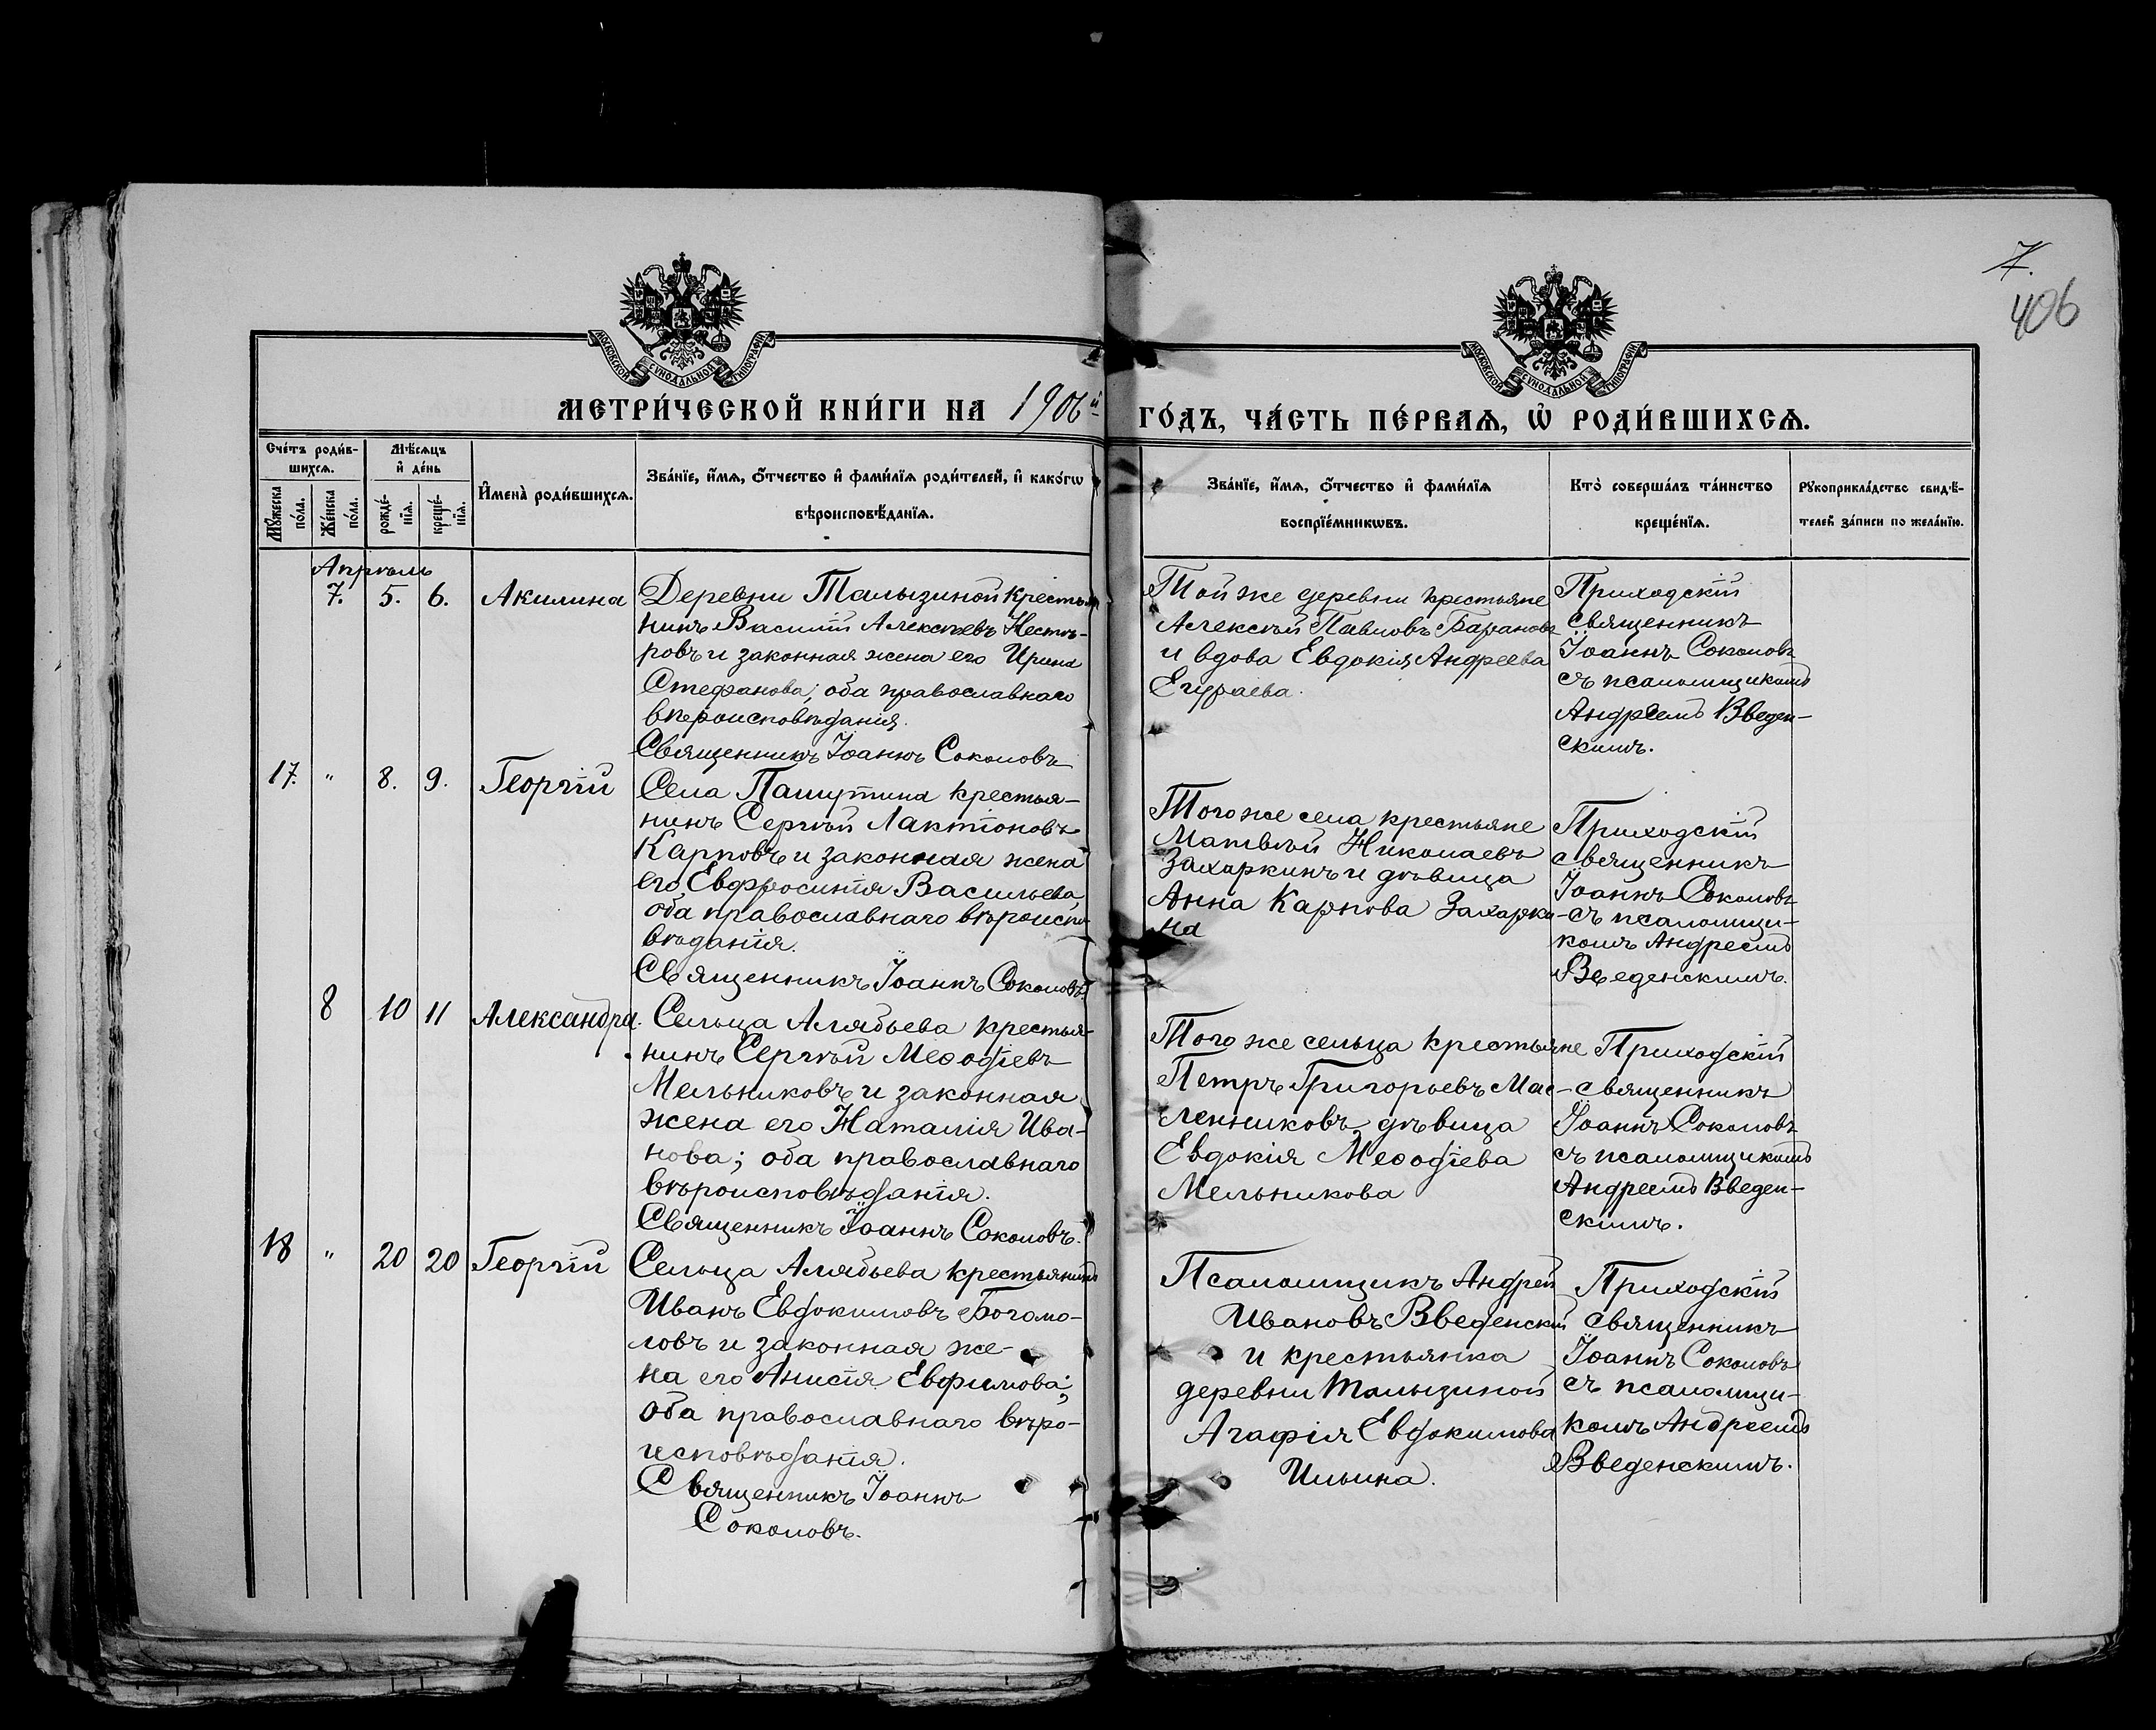 7.
406
МОСКОВСКОЙ СѴНОДАЛЬНОЙ ТИПОГРАФІИ
МОСКОВСКОЙ СѴНОДАЛЬНОЙ ТИПОГРАФІИ
МЕТРИ́ЧЕСКОЙ КНИ́ГИ НА 1906й ГО́ДЪ, ЧА́СТЬ ПЕ́РВАѦ, Ѡ РОДИ́ВШИХСѦ.
Сче́тъ роди́в-
шихсѧ.
Мѣ́сѧцъ
и҆ де́нь
Мꙋ́жеска
по́ла.
Же́нска
по́ла.
рожде́-
нїѧ.
креще́-
нїѧ.
И҆мена̀ роди́вшихсѧ.
Зва́нїе, и҆́мѧ, ѻ҆́тчество и҆ фами́лїѧ роди́телей, и҆ како́гѡ
вѣроисповѣ́данїѧ.
Зва́нїе, и҆́мѧ, ѻ҆́тчество и҆ фами́лїѧ
воспрїе́мникѡвъ.
Кто̀ соверша́лъ та́инство
креще́нїѧ.
Рꙋкоприкла́дство свидѣ́-
телей за́писи по жела́нїю.
Апрѣль
7. 5. 6. Акилина
Деревни Талызиной кресть-
нинъ Василій Алексѣевъ Несте-
ровъ и законная жена его Ирина
Стефанова; оба православнаго
вѣроисповѣданія.
Священникъ Іоаннъ Соколовъ
Той же деревни крестьяне
Алексѣй Павловъ Барановъ
и вдова Евдокія Андреева
Егураева.
Приходскій
священникъ
Іоаннъ Соколовъ
съ псаломщикомъ
Андреемъ Введен-
скимъ.
17. " 8. 9. Георгій
Села Пашутина крестья-
нинъ Сергѣй Лактіоновъ
Карповъ и законная жена
его Евфросинія Васильева,
оба православнаго вѣроиспо-
вѣданія.
Священникъ Іоаннъ Соколовъ
Того же села крестьяне
Матвѣй Николаевъ
Захаркинъ и дѣвица
Анна Карпова Захарки-
на
Приходскій
священникъ
Іоаннъ Соколовъ
съ псаломщи-
комъ Андреемъ
Введенскимъ.
8 10 11 Александра.
Сельца Алябьева крестья-
нинъ Сергѣй Меѳодіевъ
Мельниковъ и законная
жена его Наталія Ива-
нова; оба православнаго
вѣроисповѣданія.
Священникъ Іоаннъ Соколовъ.
Того же сельца крестьяне
Петръ Григорьевъ Мас-
ленниковъ, дѣвица
Евдокія Меѳодіева
Мельникова
Приходскій
священникъ
Іоаннъ Соколовъ
съ псаломщикомъ
Андреемъ Введен-
скимъ.
18 " 20 20 Георгій
Сельца Алябьева крестьянинъ
Иванъ Евдокимовъ Богомо-
ловъ и законная же-
на его Анисія Евфимова;
оба православнаго вѣро-
исповѣданія.
Священникъ Іоаннъ
Соколовъ.
Псаломщикъ Андрей
Ивановъ Введенскій
и крестьянка
деревни Талызиной
Агафія Евдокимова
Ильина.
Приходскій
священникъ
Іоаннъ Соколовъ
съ псаломщи-
комъ Андреемъ
Введенскимъ.